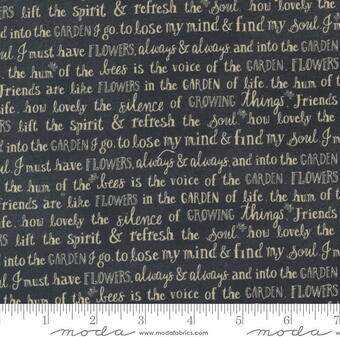 RS lift the Spirit & refresh the Soul. how lovely the
and into the GARDEN I go. to lose my mind & find my So
ul. I must have FLOWERS, always & always and into the GARDEN
the hum of the bees is the voice of the GARDEN. FLOWERS
Friends are like FLOWERS in the GARDEN of life. the hum of t
life. how lovely the silence of GROWING things Friends
RS lift the Spirit & refresh the Soul how lovely the
into the GARDEN I go. to lose my mind & find my Soul. I m
ul. I must have FLOWERS, always & always and into the GARDE
the hum of the bees is the voice of the GARDEN. FLOWERS
riends are like FLOWERS in the GARDEN of life. the hum of t
life. how lovely the silence of GROWING things Friends
RS lift the Spirit & refresh the Soul. how lovely the
into the GARDEN I go. to lose my mind & find my Soul. I m
l. I must have FLOWERS, always & always and into the GARDEN
the hum of the bees is the voice of the GARDEN. FLOWERS
1 2 3 4 5 6 7
moda www.modafabrics.com moda